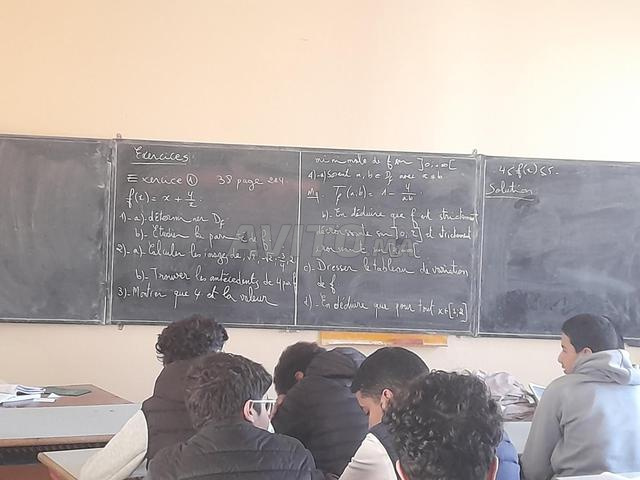 Exercices:
Exercice ① 38 page 224
f(x) = x + 4/x
1)-a). déterminer Df
b)- Etudier la parité de
2)-a). Calculer les images de
b)- Trouver les antécédents de 4 par f
3)- Montrer que 4 est la valeur
minimale de f sur ]0,+∞[
4)-a) Soient a, b ∈ Df avec a≠b
Mq: Tf(a,b) = 1 - 4/ab
b)- En déduire que f est strictement
décroissante sur ]0,2] et strictement
croissante
c)- Dresser le tableau de variation
de f
d)- En déduire que pour tout x∈[1;2]
4≤f(x)≤5.
Solution
AVITO